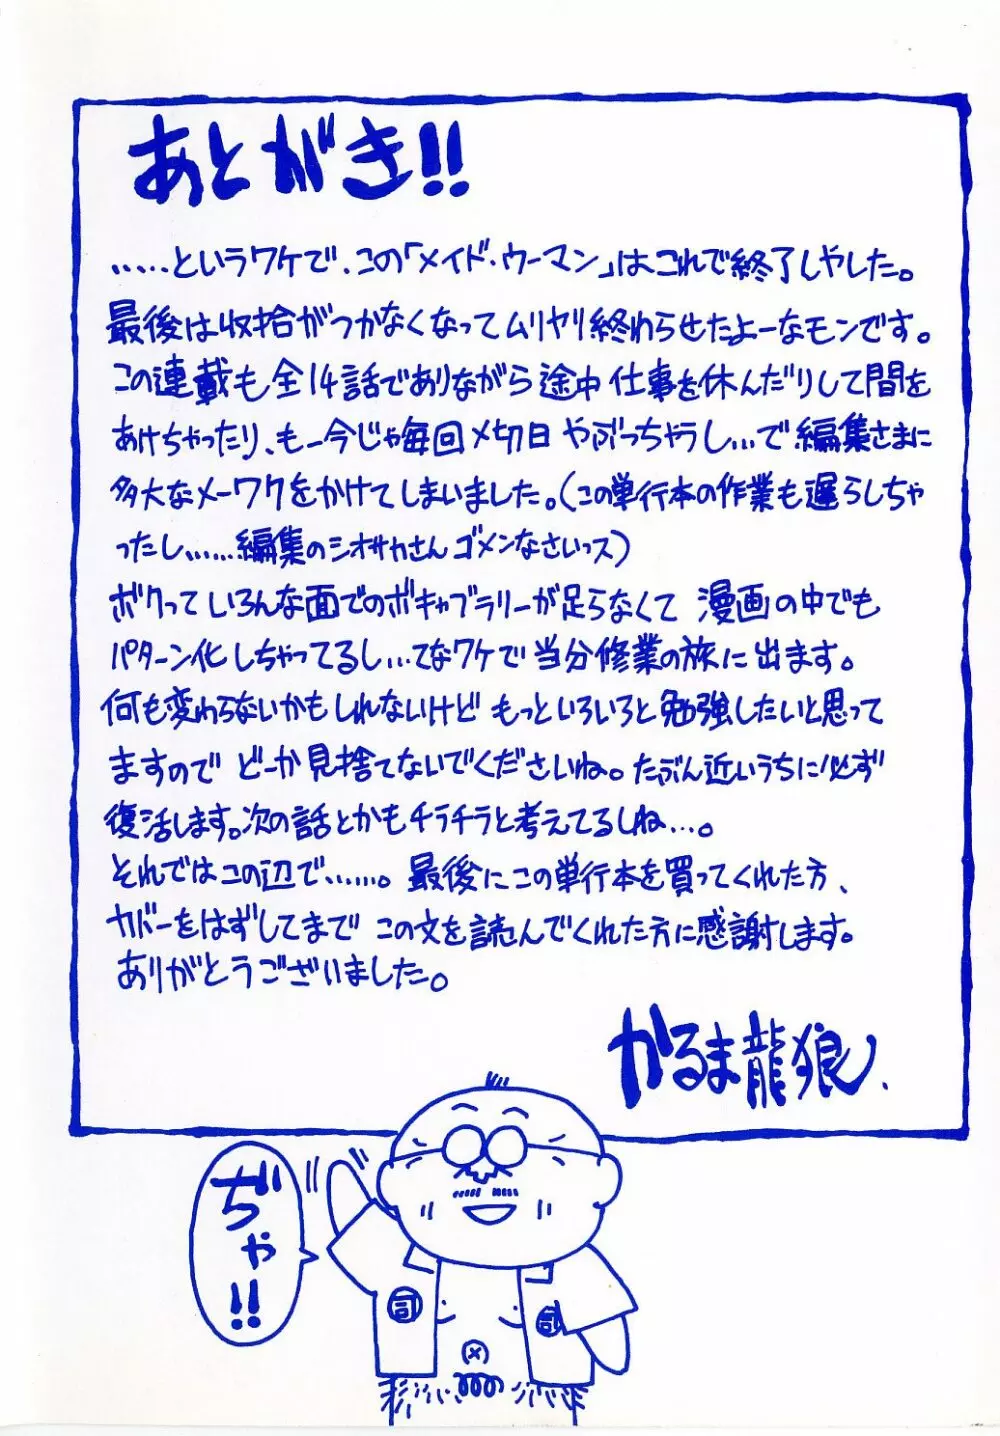 あとがき!!
……というワケで、この「メイド・ウーマン」は、これで終了しやした。
最後は収拾がつかなくなってムリヤリ終わらせたよーなモンです。
この連載も全14話でありながら途中仕事を休んだりして間を
あけちゃったり、も一今じゃ毎回〆切日やぶっちゃうし…で編集さまに
多大なメーワクをかけてしまいました。(この単行本の作業も遅らしちゃ
ったし……編集のシオサカさんゴメンなさいっス)
ボクっていろんな面でのボキャブラリーが足らなくて漫画の中でも
パターン化しちゃってるし…てなワケで当分修業の旅に出ます。
何も変わらないかもしれないけどもっといろいろと勉強したいと思って
ますのでどーか見捨てないでくださいね。たぶん近いうちに必ず
復活します。次の話とかもチラチラと考えてるしね…。
それではこの辺で……。最後にこの単行本を買ってくれた方、
カバーをはずしてまでこの文を読んでくれた方に感謝します。
ありがとうございました。
かるま龍狼、
ぢゃ!!
司
司